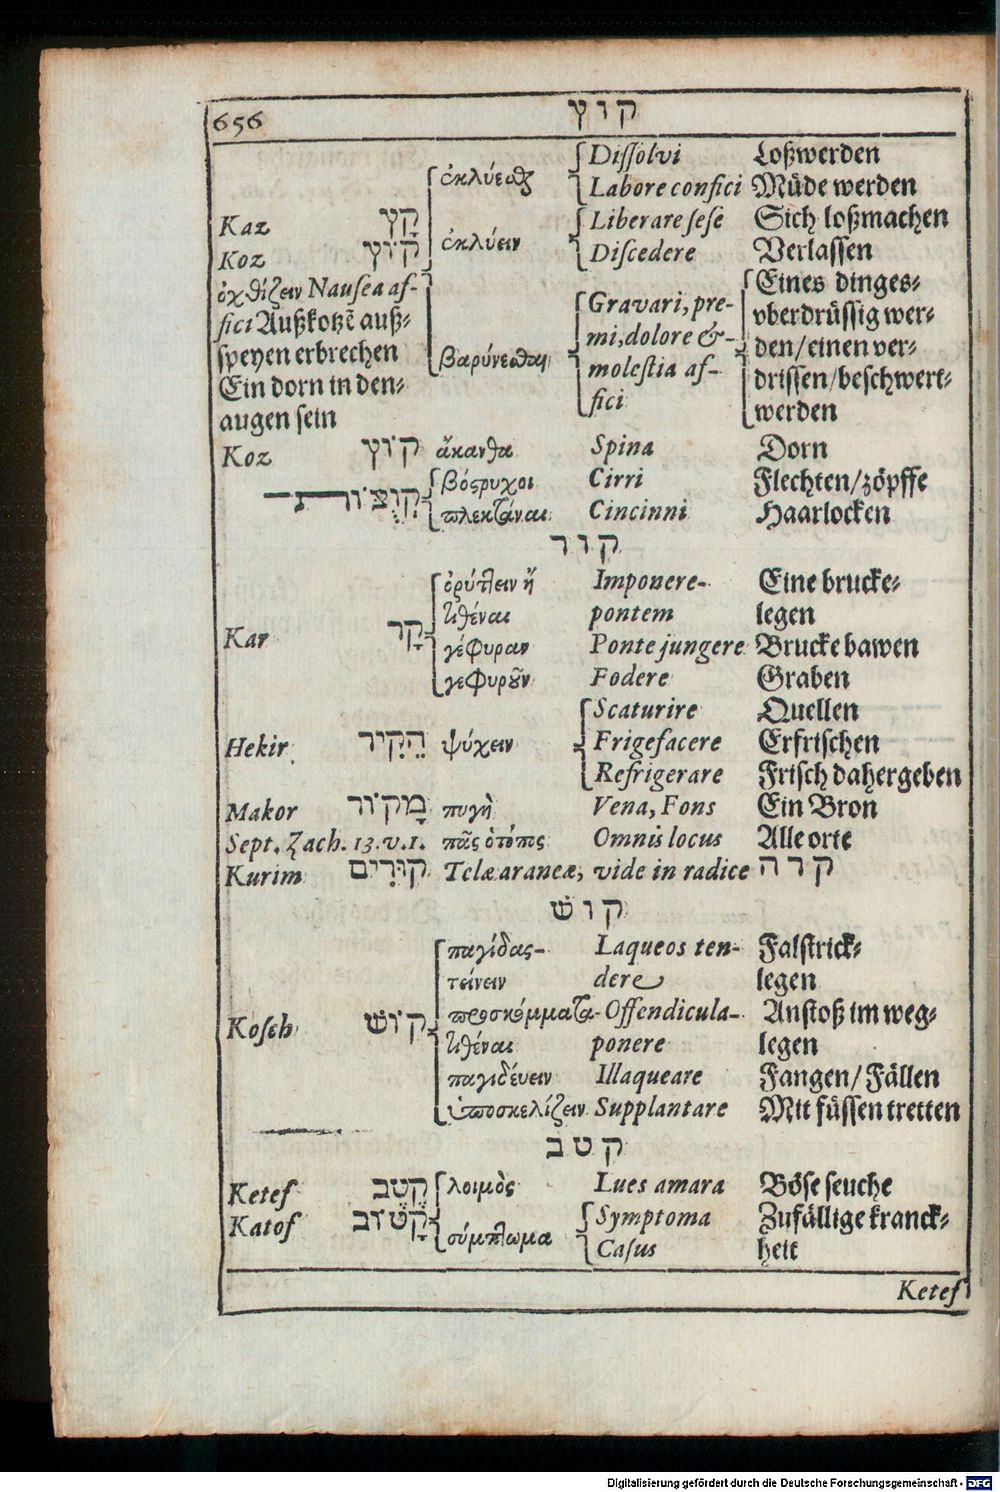 656 קוץ
ἐκλύεσθαι Dissolvi Loßwerden
Labore confici Müde werden
Kaz קָץ Liberare sese Sich loßmachen
Koz קוֹץ ἐκλύειν Discedere Verlassen
ὀχθίζειν Nausea af- Eines dinges-
fici Außkotzẽ auß- Gravari, pre- vberdrüssig wer-
speyen erbrechen βαρύνεσθαι mi, dolore &- den/einen ver-
Ein dorn in den- molestia af- drissen/beschwert-
augen sein fici werden
Koz קוֹץ ἄκανθα Spina Dorn
βόςρυχοι Cirri Flechten/zöpffe
קְוֻצּוֹת πλεκτάναι Cincinni Haarlocken
קור
ὀρύττειν ἢ Imponere- Eine brucke-
τιθέναι pontem legen
Kar קָר γέφυραν Ponte jungere Brucke bawen
γεφυροῦν Fodere Graben
Scaturire Quellen
Hekir הֵקִיר ψύχειν Frigefacere Erfrischen
Refrigerare Frisch dahergeben
Makor מָקוֹר πυγὴ Vena, Fons Ein Bron
Sept. Zach. 13. v. 1. πᾶς ὁτόπος Omnis locus Alle orte
Kurim קוּרִים Telæ araneæ, vide in radice קרה
קוש
παγίδας- Laqueos ten- Falstrick-
τείνειν dere legen
Kosch קוֹשׁ προσκόμματα- Offendicula- Anstoß im weg-
τιθέναι ponere legen
παγιδέυειν Illaqueare Fangen/Fällen
ὑποσκελίζειν Supplantare Mit füssen tretten
קטב
Ketef קֶטֶב λοιμὸς Lues amara Böse seuche
Katof קָטוֹב σύμπτωμα Symptoma Zufällige kranck-
Casus heit
Ketef
Digitalisierung gefördert durch die Deutsche Forschungsgemeinschaft - DFG